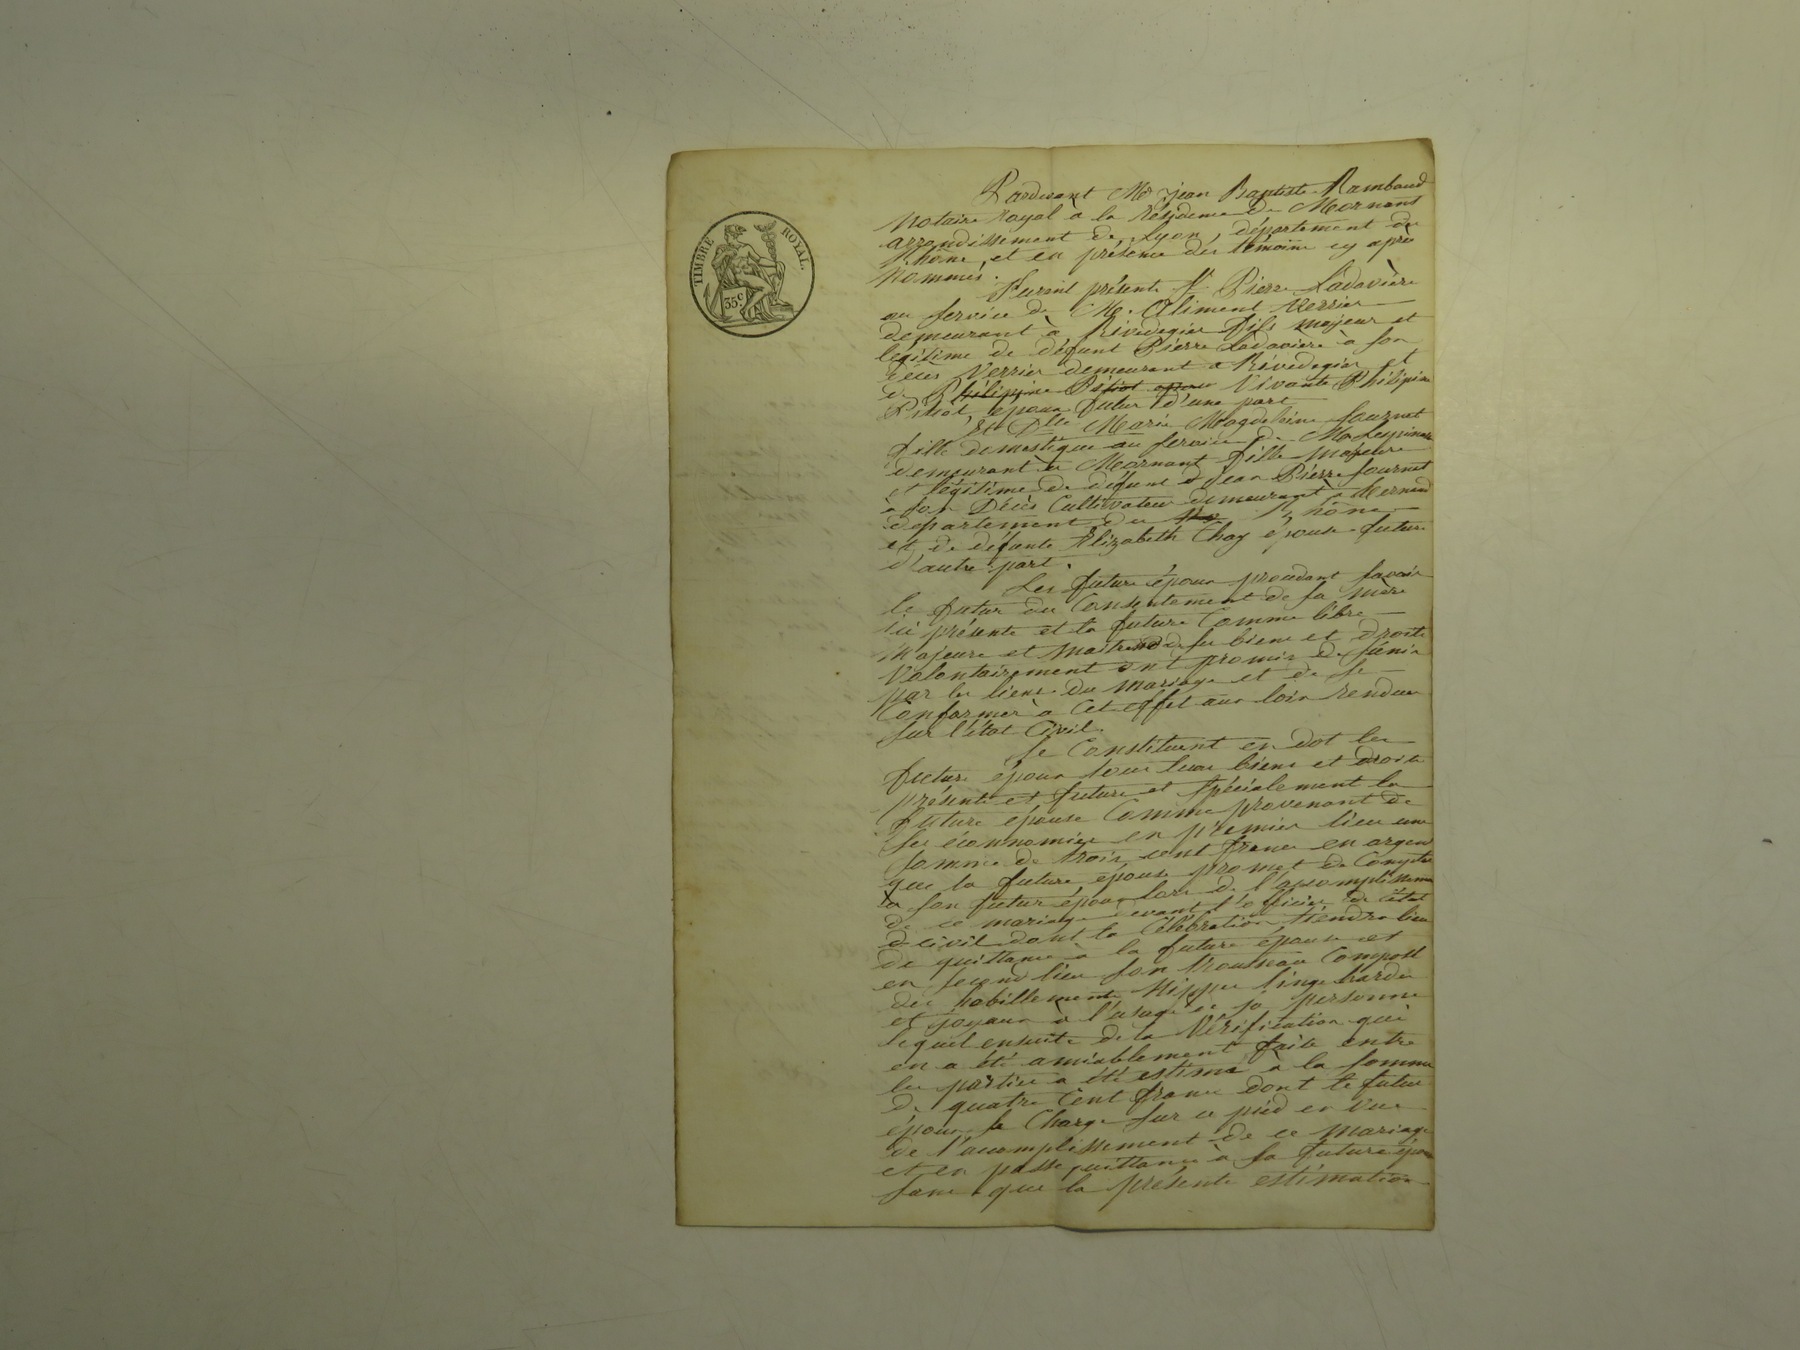 TIMBRE ROYAL.
35c
Pardevant Me Jean Baptiste Rambaud
Notaire royal à la résidence de Mornant
arrondissement de Lyon, département du
Rhône, et en présence des témoins cy après
nommés.
Furent présents Sr Pierre Ladavière
au service de Mr. Aliment Verrier
demeurant à Rivedegier fils majeur et
légitime de défunt Pierre Ladavière à son
Décès Verrier demeurant à Rivedegier et
de Philippine Pitiot epoux Vivante Philipine
Pitiot, époux futur d'une part
Et Dlle Marie Magdeleine Journet
fille domestique au service de Mr Lespinasse
demeurant à Mornant fille majeure
et légitime de défunt Jean Pierre Journet
à son Décès Cultivateur demeurant à
département du Rhône
et de défunte Elizabeth Chay épouse future
d'autre part.
Les future époux procédant savoir
le futur du Consentement de sa mère
ici présente et la future Comme libre
majeure et maitresse de ses biens et droits
Volontairement ont promis de s'unir
par les liens du mariage et de se
Conformer à Cet effet aux lois rendues
sur l'état Civil.
Se Constituent en dot les
future époux tous leurs biens et droits
présents et future et spécialement la
future épouse Comme provenant de
ses économies en premier lieu une
somme de trois cent francs en argent
que la future épouse promet de Compter
à son futur époux lors de l'accomplissement
de ce mariage devant l'officier de l'état
civil dont la Célébration tiendra lieu
de quittance à la future épouse et
en second lieu son trousseau Composé
des habillements Nippes linge hardes
et joyaux à l'usage de sa personne
lequel ensuite de la Vérification qui
en a été amiablement faite entre
les parties a été estimé à la somme
de quatre Cent francs dont le futur
époux se Charge sur ce pied en Vue
de l'accomplissement de ce mariage
et en passe quittance à sa future épouse
sans que la présente estimation